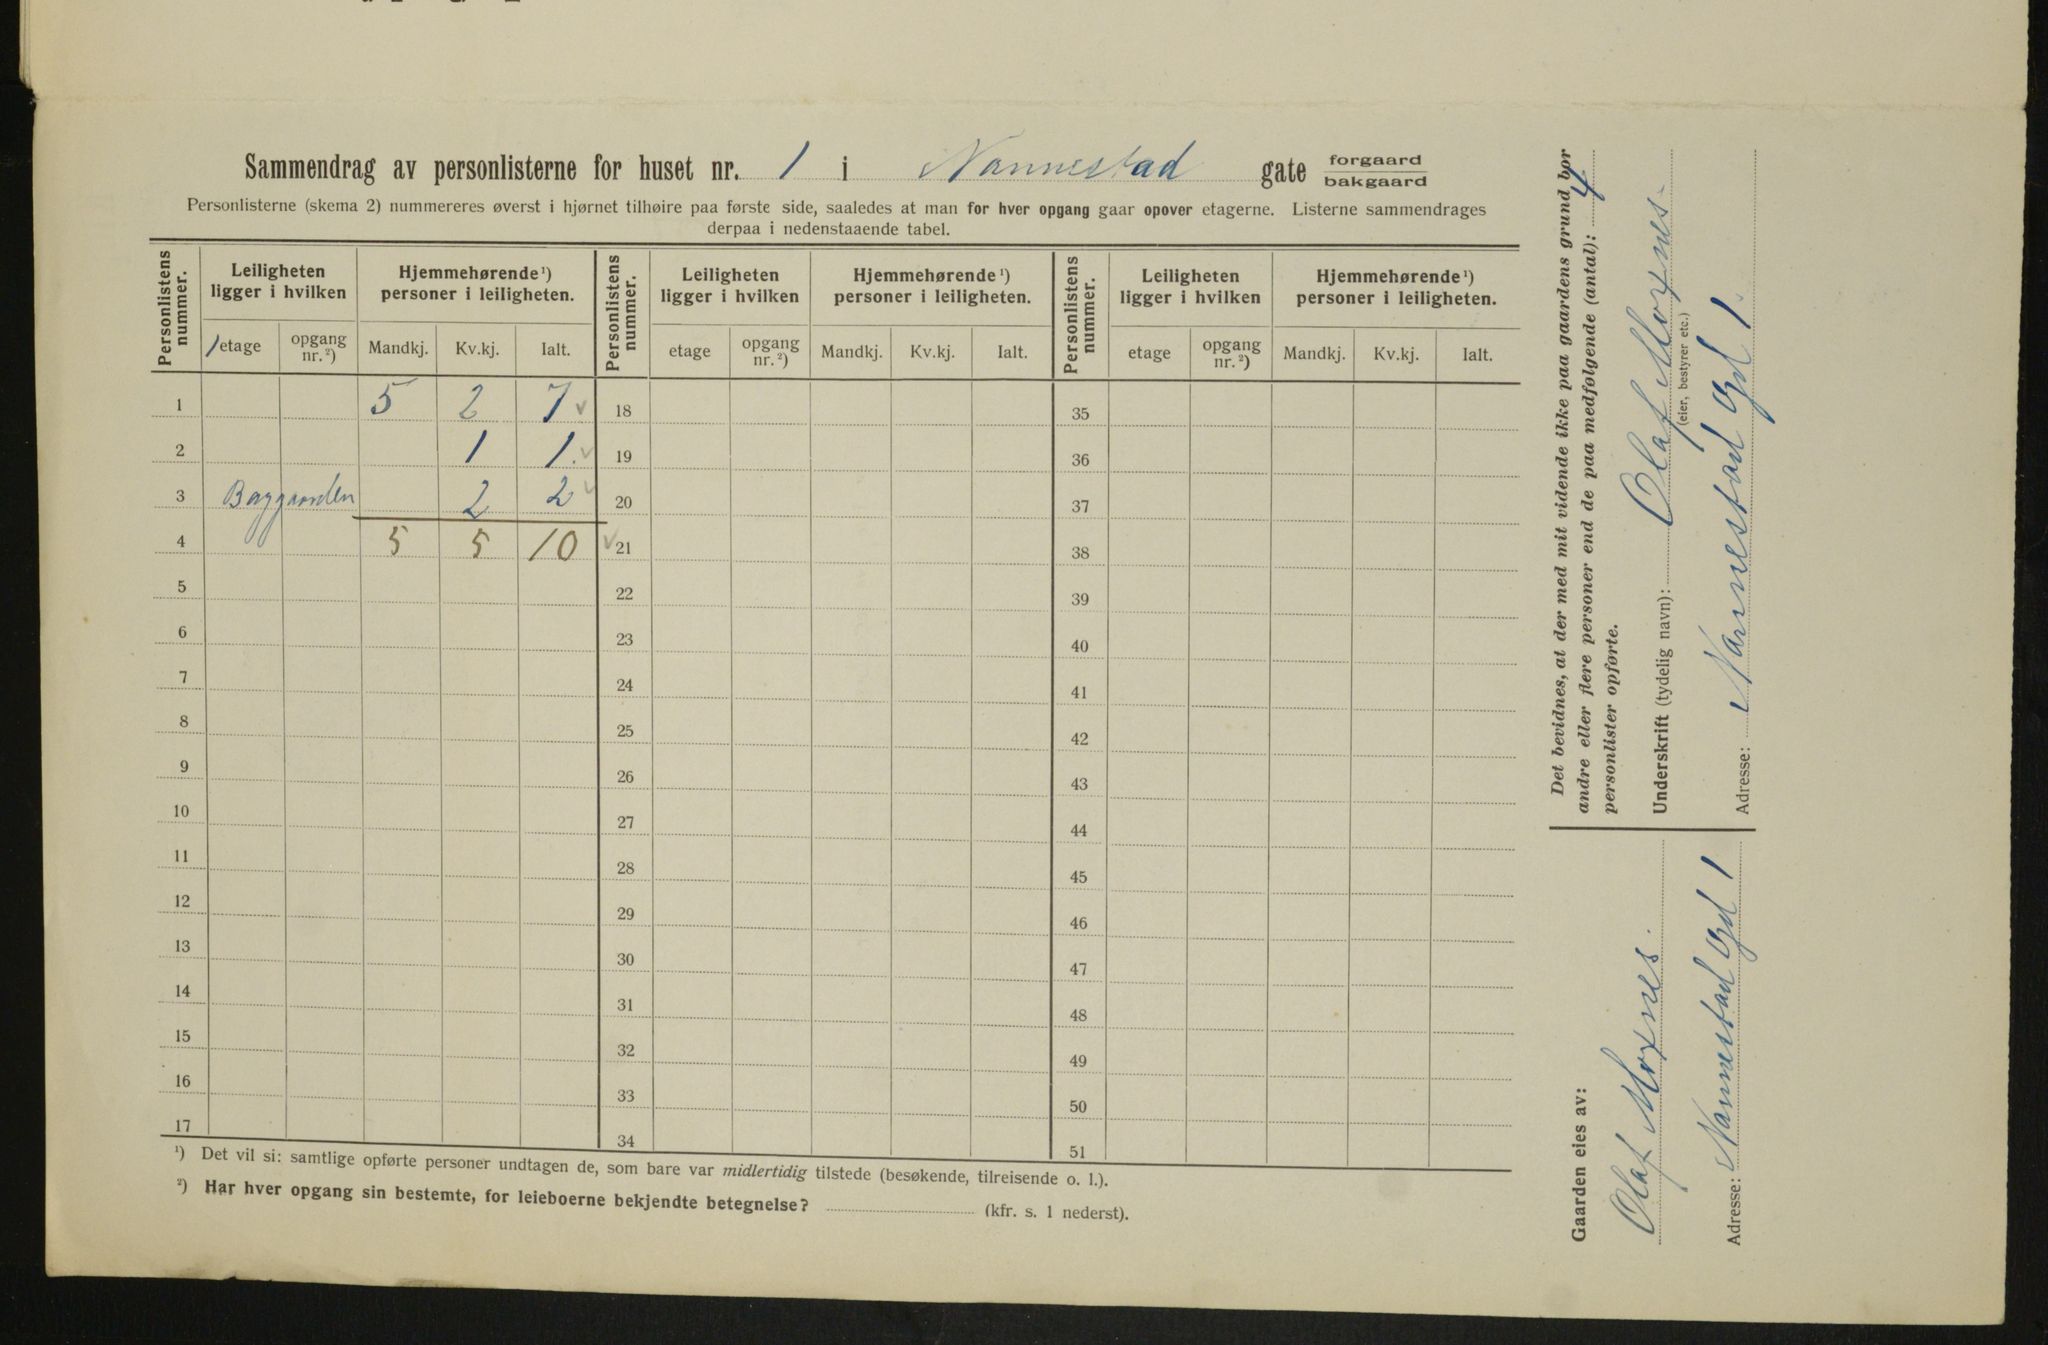 Sammendrag av personlisterne for huset nr. 1 i Nannestad gate forgaard
bakgaard
Personlisterne (skema 2) nummereres øverst i hjørnet tilhøire paa første side, saaledes at man for hver opgang gaar opover etagerne. Listerne sammendrages
derpaa i nedenstaaende tabel.
Personlistens nummer. Leiligheten ligger i hvilken Hjemmehørende ¹) personer i leiligheten. Personlistens nummer. Leiligheten ligger i hvilken Hjemmehørende ¹) personer i leiligheten. Personlistens nummer. Leiligheten ligger i hvilken Hjemmehørende ¹) personer i leiligheten.
1 etage opgang nr. ²) Mandkj. Kv.kj. Ialt. etage opgang nr. ²) Mandkj. Kv.kj. Ialt. etage opgang nr. ²) Mandkj. Kv.kj. Ialt.
1 5 2 7 18 35
2 1 1 19 36
3 Baggaarden 2 2 20 37
4 5 5 10 21 38
5 22 39
6 23 40
7 24 41
8 25 42
9 26 43
10 27 44
11 28 45
12 29 46
13 30 47
14 31 48
15 32 49
16 33 50
17 34 51
¹) Det vil si: samtlige opførte personer undtagen de, som bare var midlertidig tilstede (besøkende, tilreisende o. l.).
²) Har hver opgang sin bestemte, for leieboerne bekjendte betegnelse? (kfr. s. 1 nederst).
Gaarden eies av:
Olaf Moxnes.
Adresse: Nannestad Gd 1
Det bevidnes, at der med mit vidende ikke paa gaardens grund bor
andre eller flere personer end de paa medfølgende (antal): 4
personlister opførte.
Underskrift (tydelig navn): Olaf Moxnes.
(eier, bestyrer etc.)
Adresse: Nannestad Gd 1.